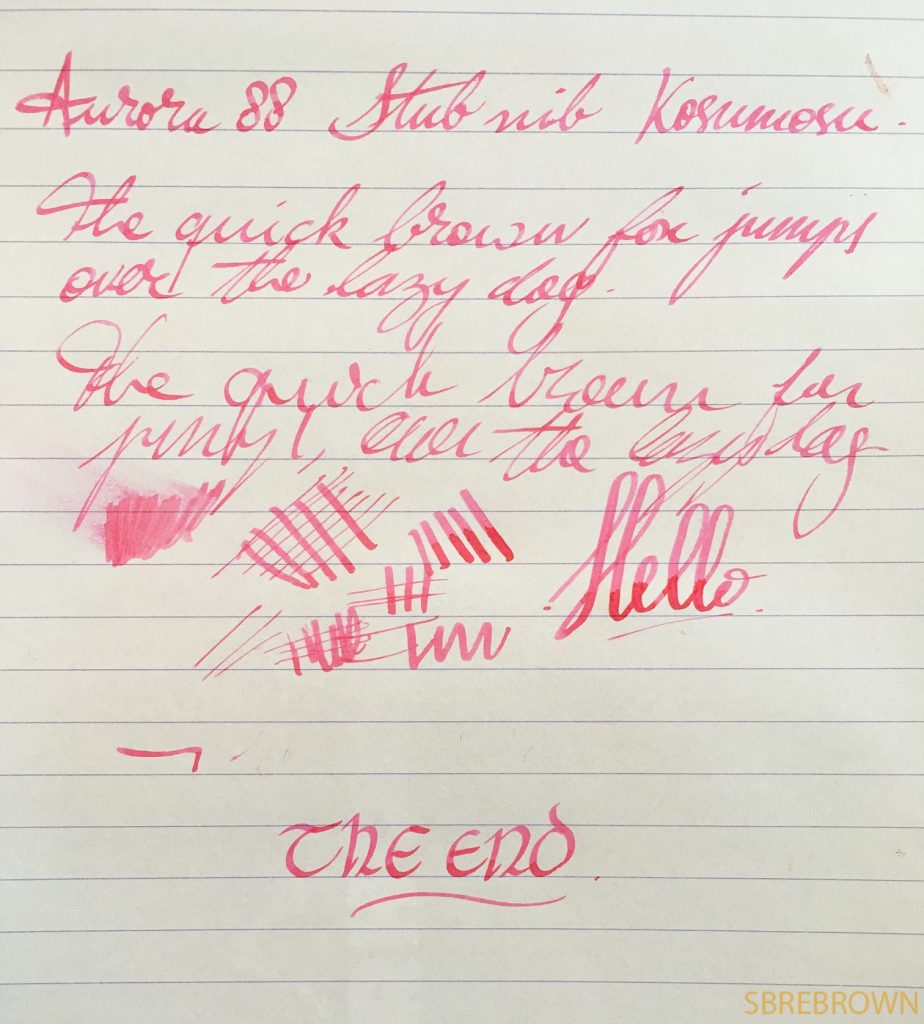 Aurora 88 Stub nib Kosumosu.
The quick brown fox jumps
over the lazy dog.
The quick brown fox
jumps, over the lazy dog
Hello.
The End.
SBREBROWN